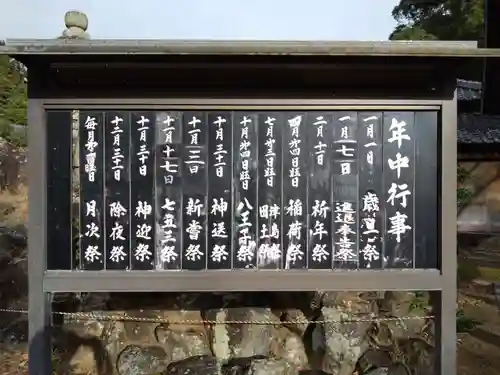 年中行事
一月一日 歳旦祭
一月七日
二月十一日 祈年祭
四月第四日曜日 稲荷祭
七月第三日曜日 津島祭
田土祭
十月第四日曜日
十月三十日 神送祭
十一月二十三日 新嘗祭
十一月十七日 七五三祭
十一月三十日 神迎祭
十二月三十一日 除夜祭
毎月 日曜日 月次祭